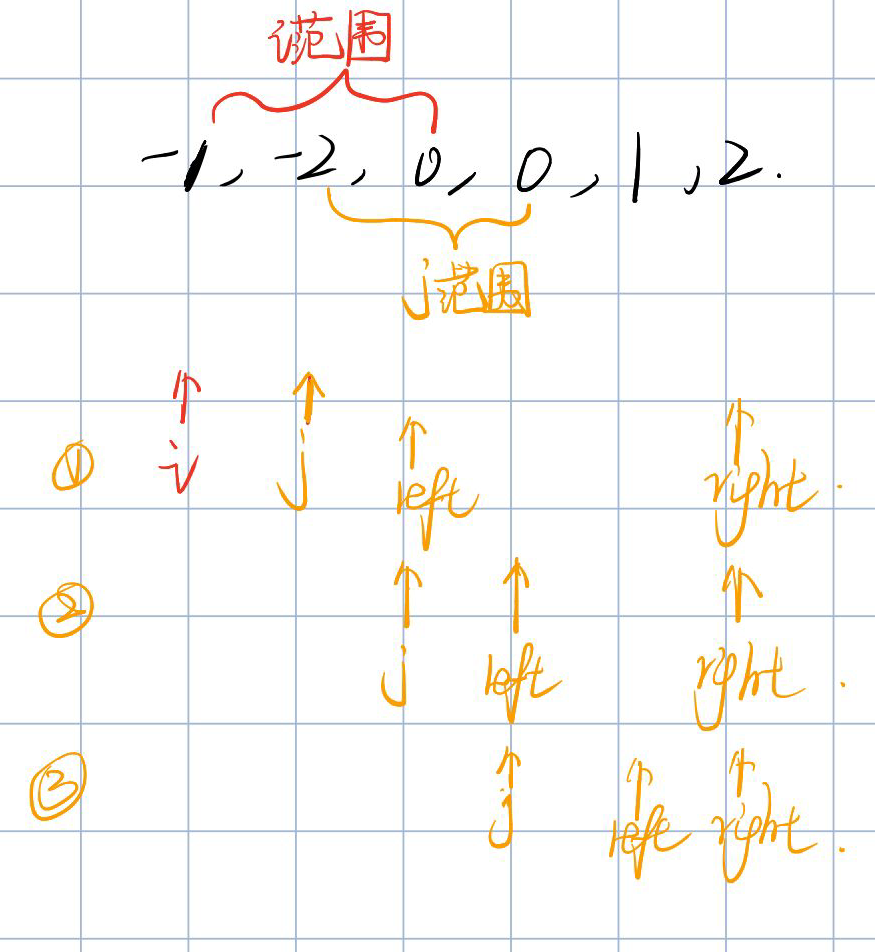 i范围
-1, -2, 0, 0, 1, 2.
j范围
① i j left right.
② j left right.
③ j left right.